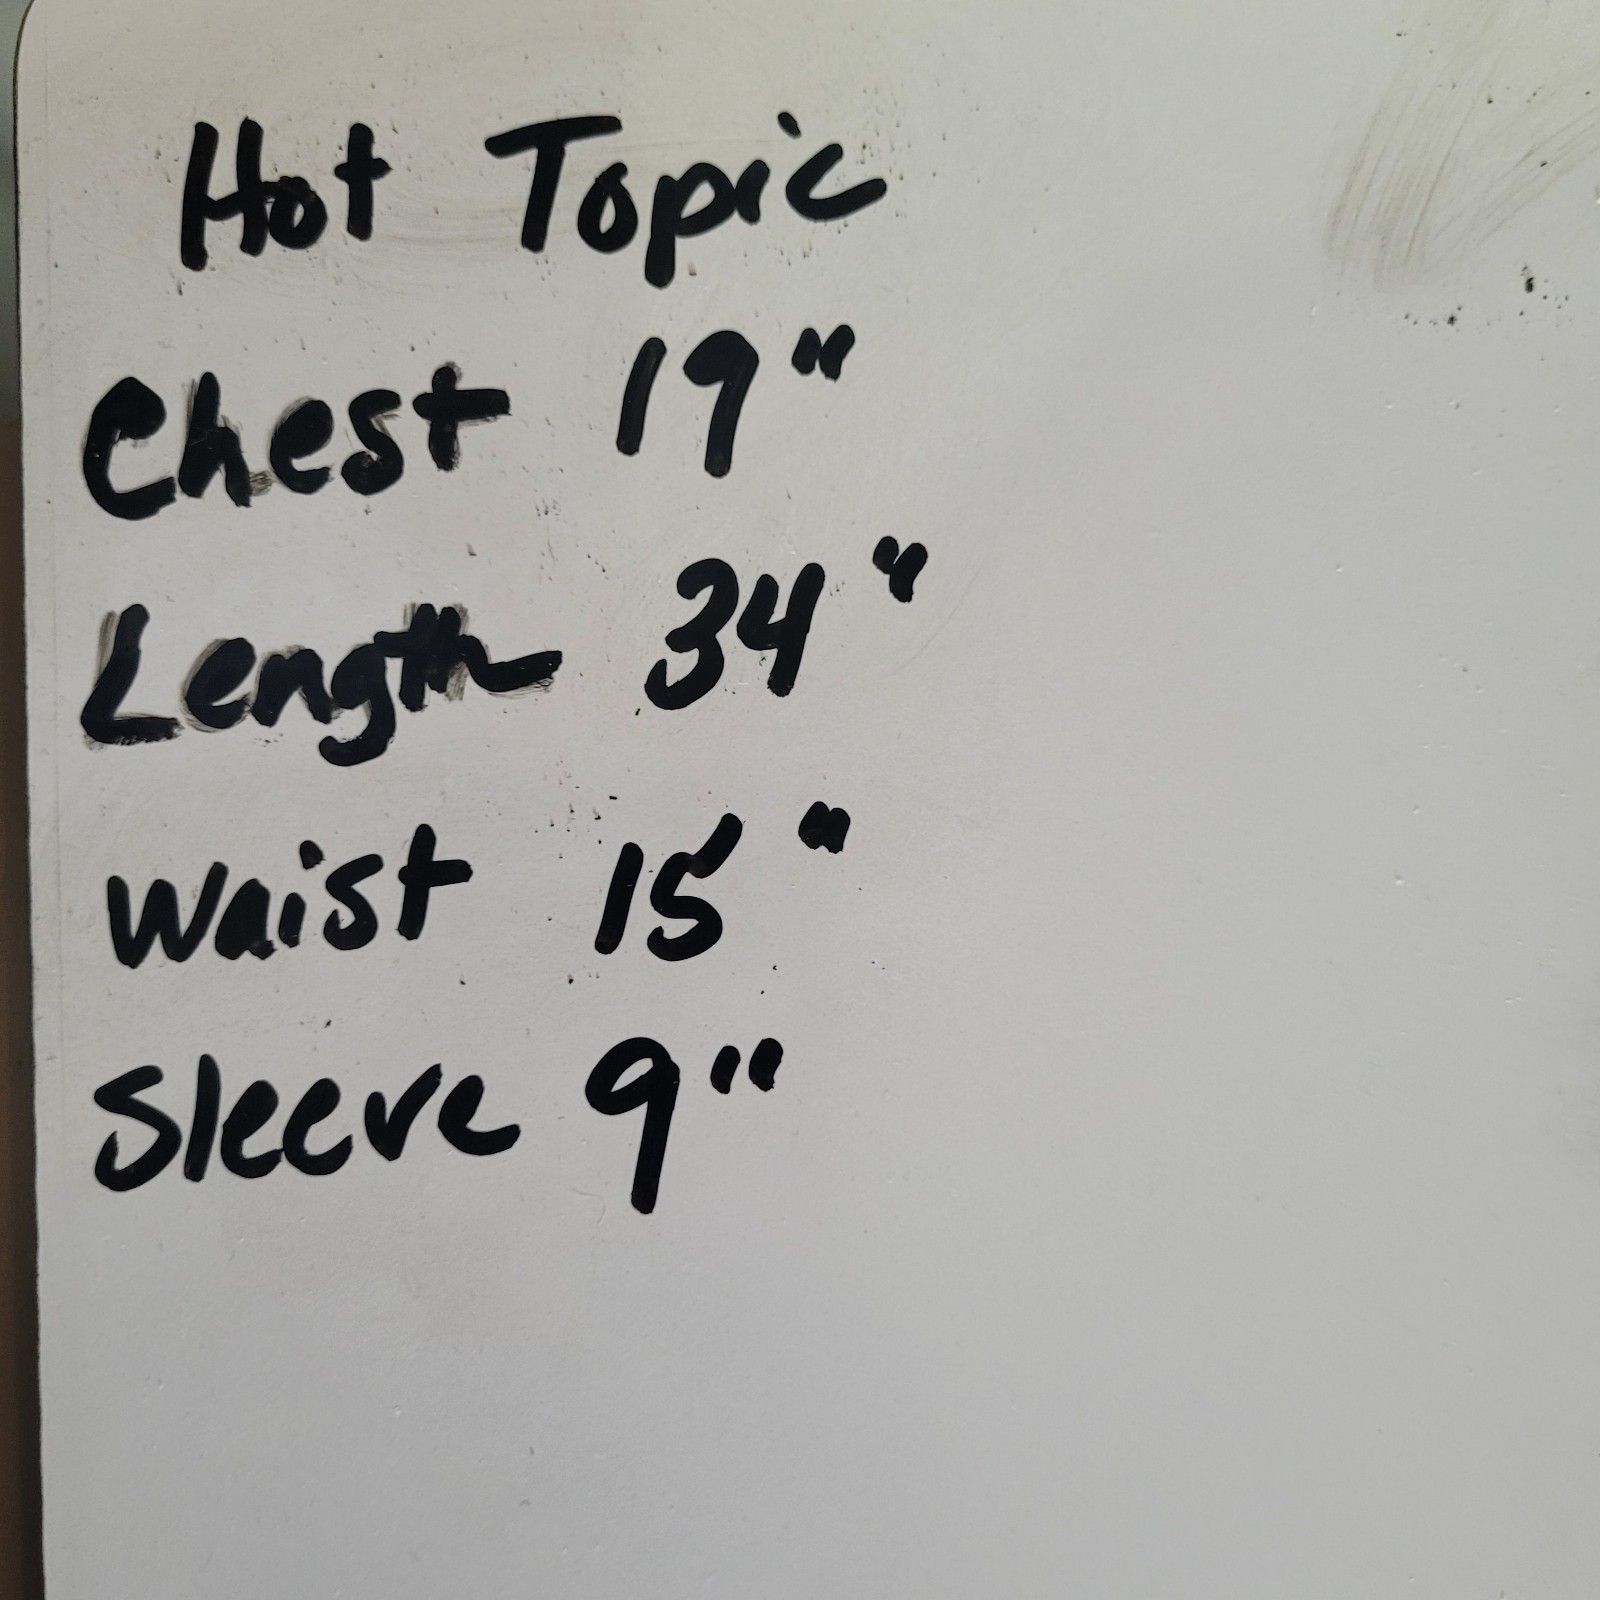 Hot Topic
Chest 19"
Length 34"
Waist 15"
Sleeve 9"